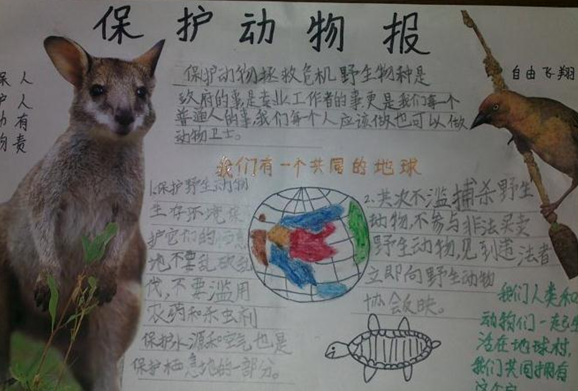 保护动物报
保护 人人有责
自由飞翔
保护动物拯救危机野生物种是
政府的事是专业工作者的事更是我们每一个
普通人的事,我们每个人应该做也可以做
动物卫士。
我们有一个共同的地球
1.保护野生动物
生存环境保
护它们的
地不要乱砍乱
伐,不要滥用
农药和杀虫剂
保护水源和空气,也是
保护栖息地的一部分。
2.其次不滥捕杀野生
动物,不参与非法买卖
野生动物,见到违法者
立即向野生动物
协会反映。
我们人类和
动物们一起生
活在地球村,
我们共同拥有